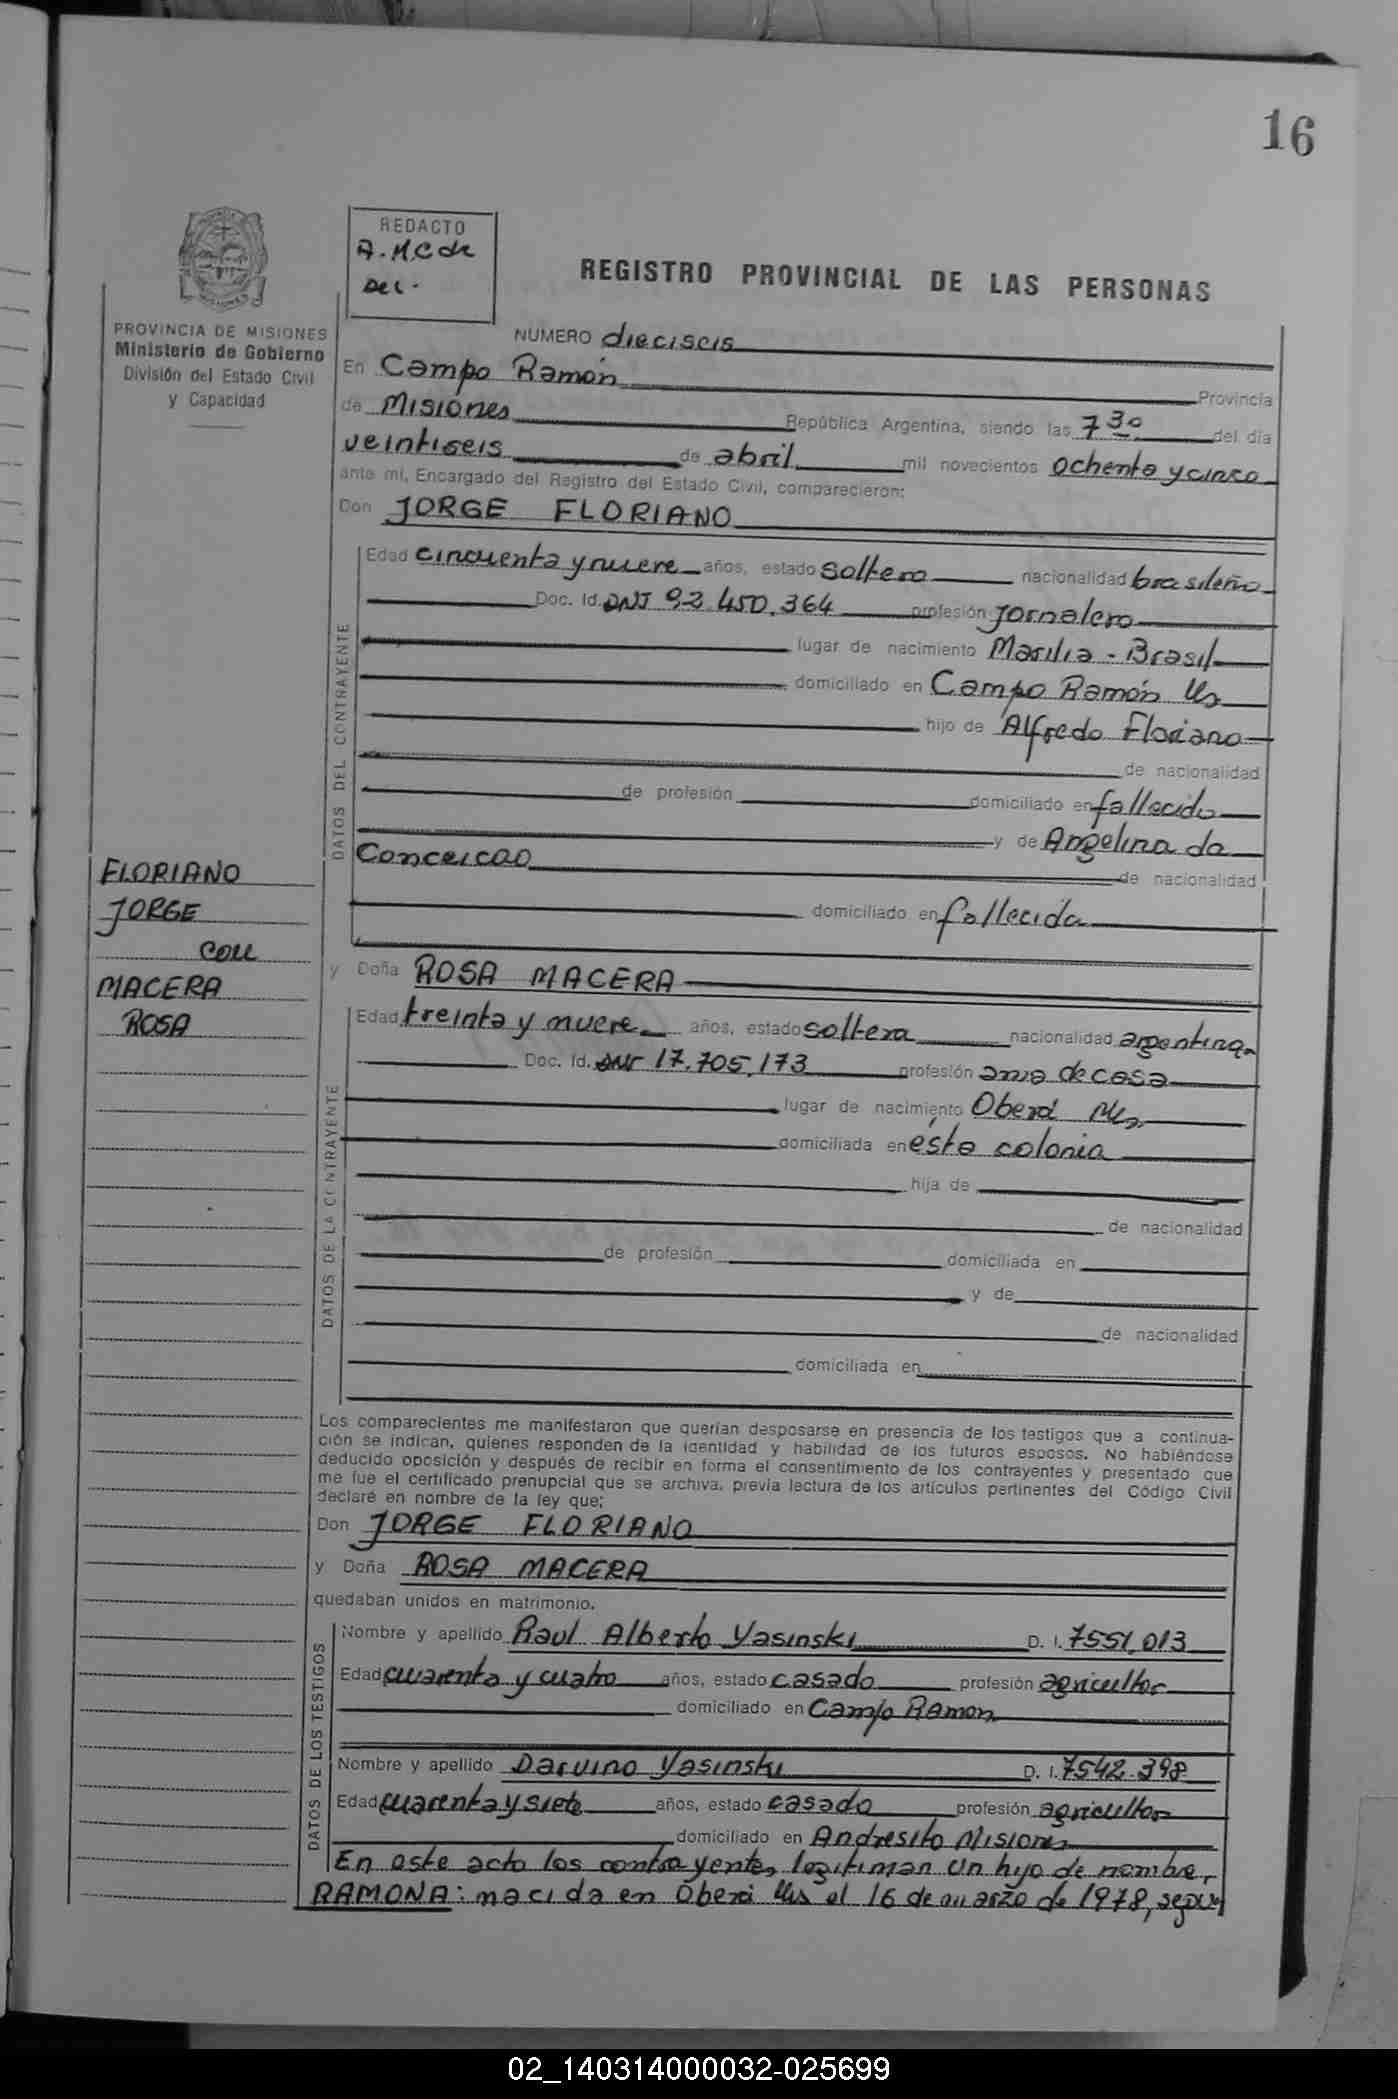 16
REDACTO
A.M.C de
REGISTRO PROVINCIAL DE LAS PERSONAS
PROVINCIA DE MISIONES
Ministerio de Gobierno
División del Estado Civil
y Capacidad
NUMERO dieciseis
En Campo Ramón Provincia
de Misiones República Argentina, siendo las 7 30 del día
veintiseis de abril mil novecientos ochenta y cinco
ante mi, Encargado del Registro del Estado Civil, comparecieron:
Don JORGE FLORIANO
DATOS DEL CONTRAYENTE
Edad cincuenta y nueve años, estado soltero nacionalidad brasileño
Doc. Id. DNI 92.450.364 profesión jornalero
lugar de nacimiento Marilia - Brasil
domiciliado en Campo Ramón
hijo de Alfredo Floriano
de nacionalidad
de profesión domiciliado en fallecido
y de Angelina da
Conceicao de nacionalidad
domiciliado en fallecida
FLORIANO
JORGE
con
MACERA
ROSA
y Doña ROSA MACERA
DATOS DE LA CONTRAYENTE
Edad treinta y nueve años, estado soltera nacionalidad argentina
Doc. Id. DNI 17.705.173 profesión ama de casa
lugar de nacimiento Oberá
domiciliada en ésta colonia
hija de
de nacionalidad
de profesión domiciliada en
y de
de nacionalidad
domiciliada en
Los comparecientes me manifestaron que querían desposarse en presencia de los testigos que a continua-
ción se indican, quienes responden de la identidad y habilidad de los futuros esposos. No habiéndose
deducido oposición y después de recibir en forma el consentimiento de los contrayentes y presentado que
me fue el certificado prenupcial que se archiva, previa lectura de los artículos pertinentes del Código Civil
declaré en nombre de la ley que:
Don JORGE FLORIANO
y Doña ROSA MACERA
quedaban unidos en matrimonio.
DATOS DE LOS TESTIGOS
Nombre y apellido Raul Alberto Yasinski D. I. 7551.013
Edad cuarenta y cuatro años, estado casado profesión agricultor
domiciliado en Campo Ramon
Nombre y apellido Darvino Yasinski D. I. 7542.398
Edad cuarenta y siete años, estado casado profesión agricultor
domiciliado en Andresito Misiones
En este acto los contrayentes legitiman un hijo de nombre
RAMONA: nacida en Oberá el 16 de marzo de 1978, según
02_140314000032-025699